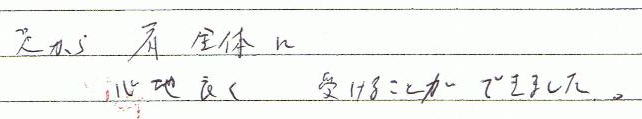 から 肩 全体に
心地良く 受けることができました。